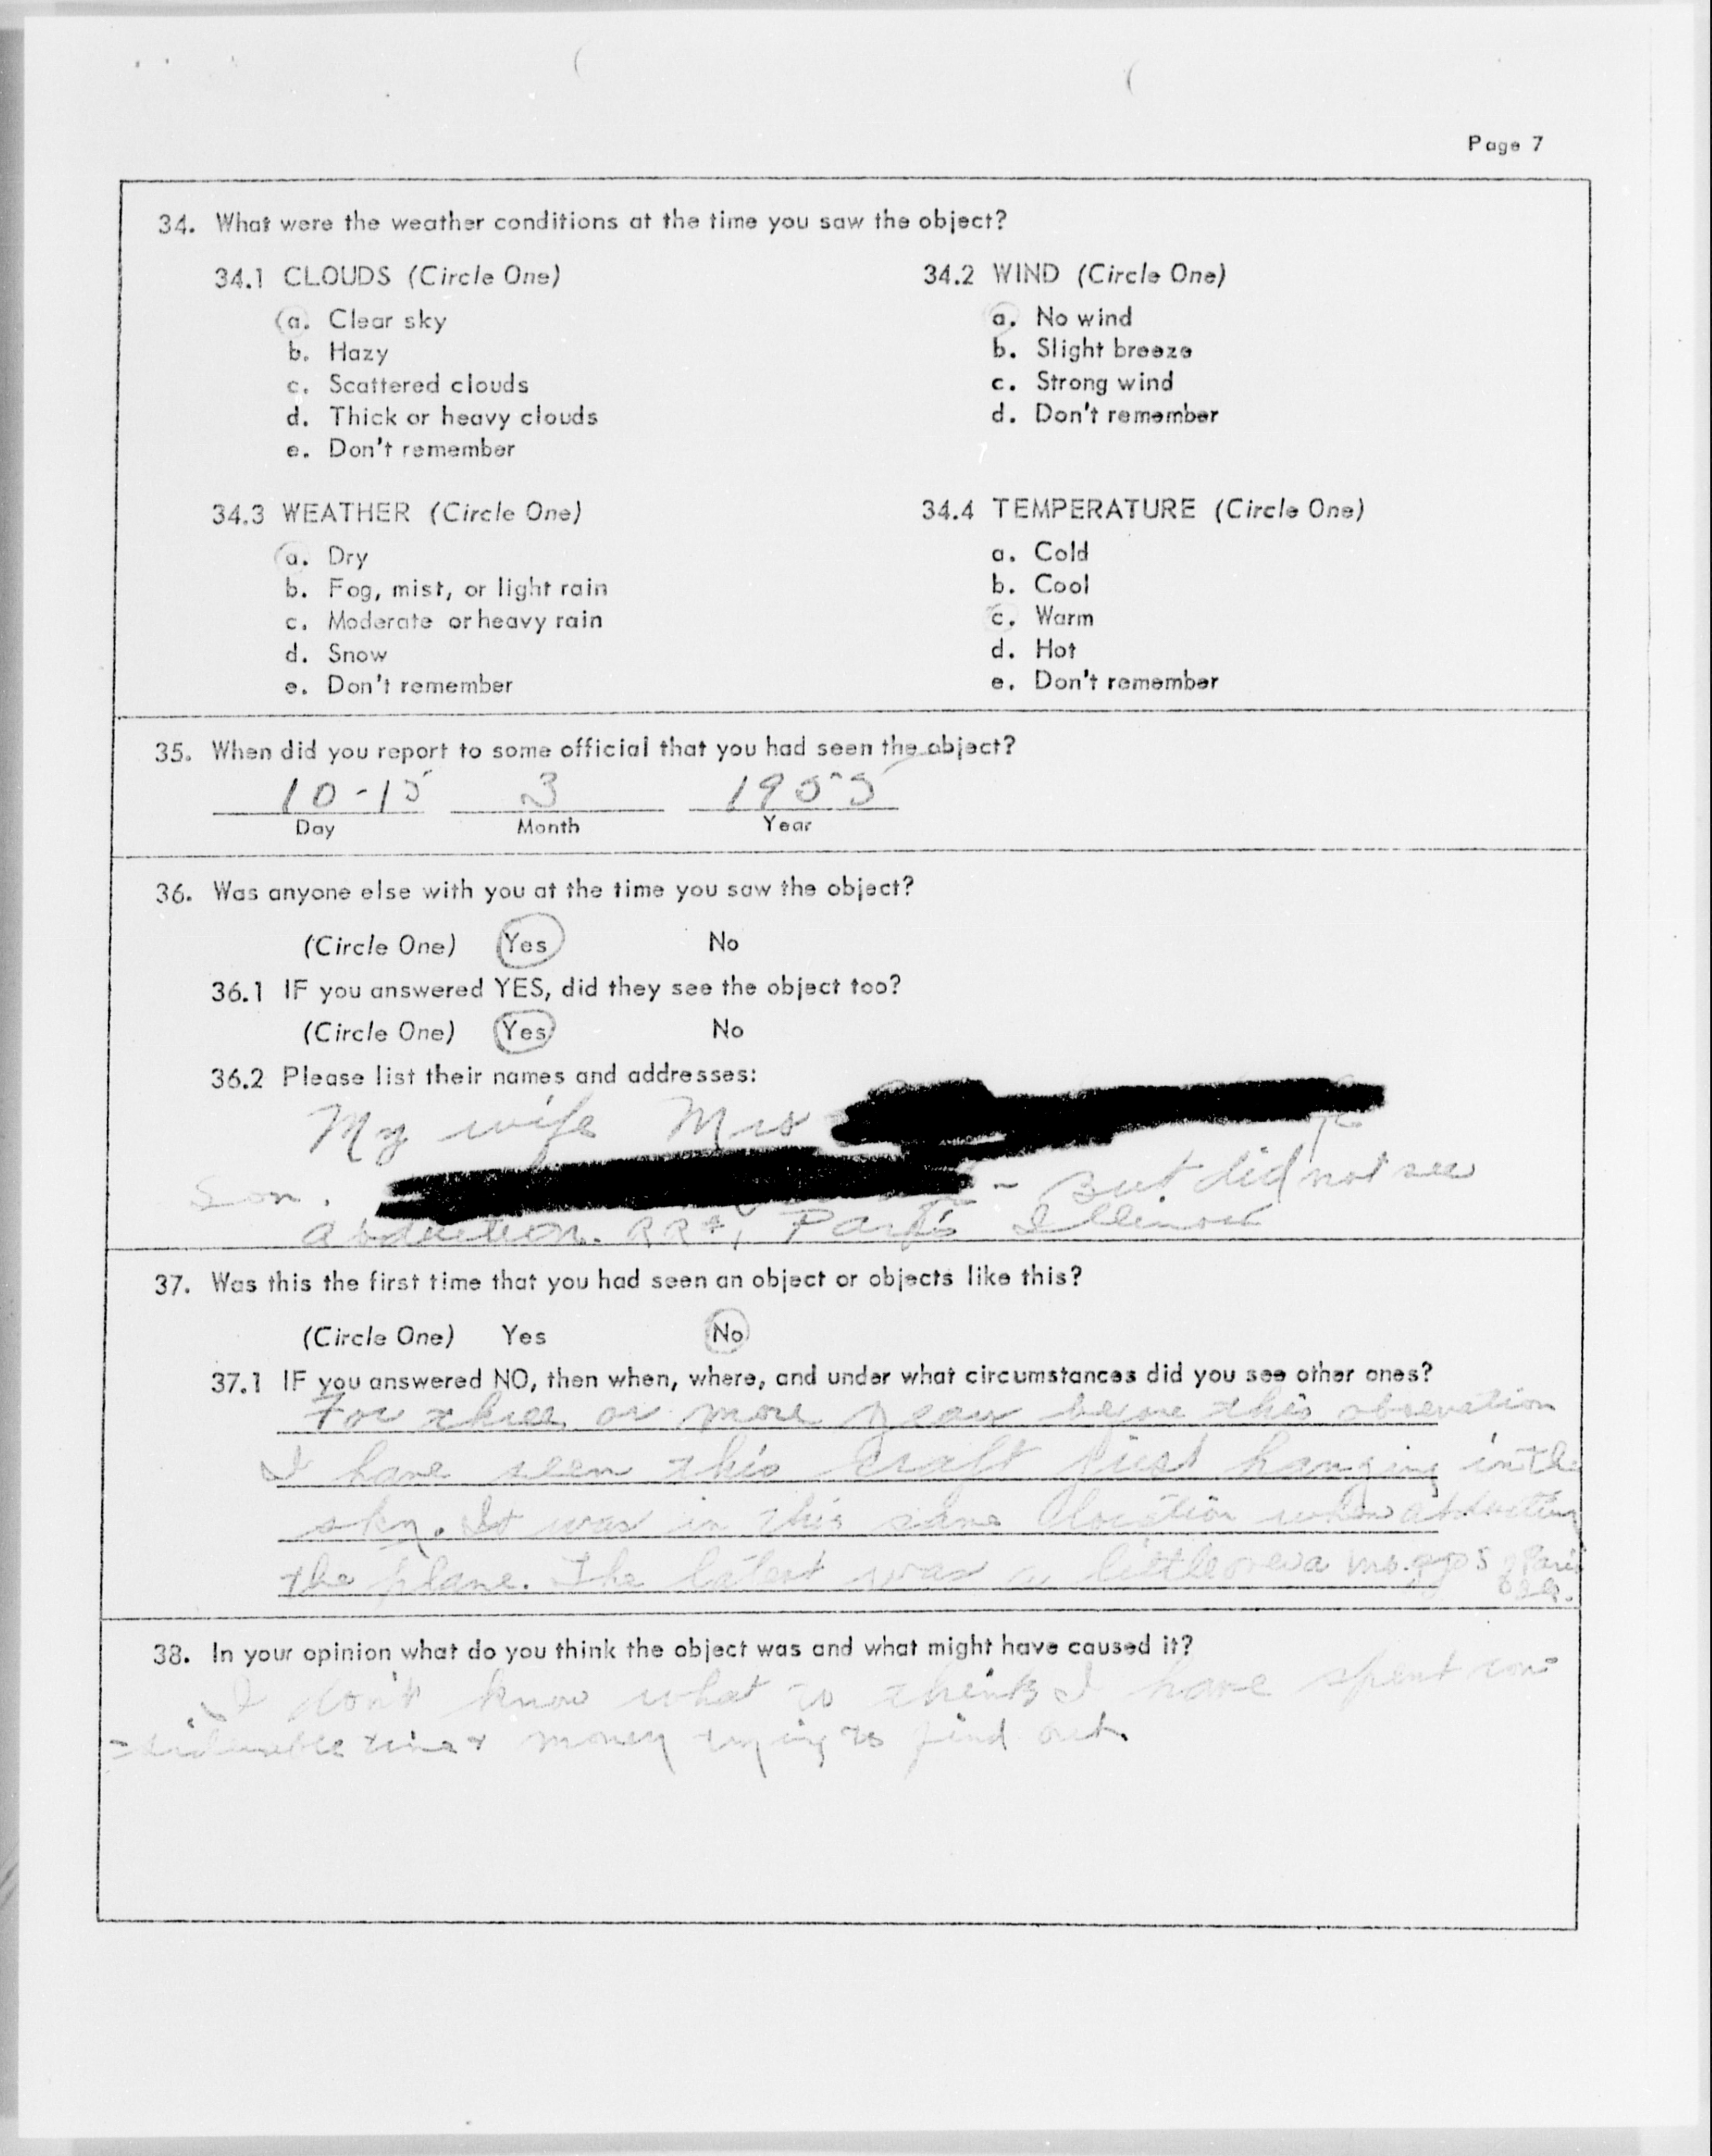 Page 7
34. What were the weather conditions at the time you saw the object?
34.1 CLOUDS (Circle One)
a. Clear sky
b. Hazy
c. Scattered clouds
d. Thick or heavy clouds
e. Don't remember
34.2 WIND (Circle One)
a. No wind
b. Slight breeze
c. Strong wind
d. Don't remember
34.3 WEATHER (Circle One)
a. Dry
b. Fog, mist, or light rain
c. Moderate or heavy rain
d. Snow
e. Don't remember
34.4 TEMPERATURE (Circle One)
a. Cold
b. Cool
c. Warm
d. Hot
e. Don't remember
35. When did you report to some official that you had seen the object?
10-15 3 1955
Day Month Year
36. Was anyone else with you at the time you saw the object?
(Circle One) Yes No
36.1 IF you answered YES, did they see the object too?
(Circle One) Yes No
36.2 Please list their names and addresses:
My wife Mrs
Son. - But did not see
abduction. RR#1 Paris Illinois
37. Was this the first time that you had seen an object or objects like this?
(Circle One) Yes No
37.1 IF you answered NO, then when, where, and under what circumstances did you see other ones?
For three or more years before this observation
I have seen this craft just hanging in the
sky. It was in this same location when abducting
the plane. The latest was a little over a mo. ago S of Paris
Ill.
38. In your opinion what do you think the object was and what might have caused it?
I don't know what to think I have spent con-
-siderable time & money trying to find out.